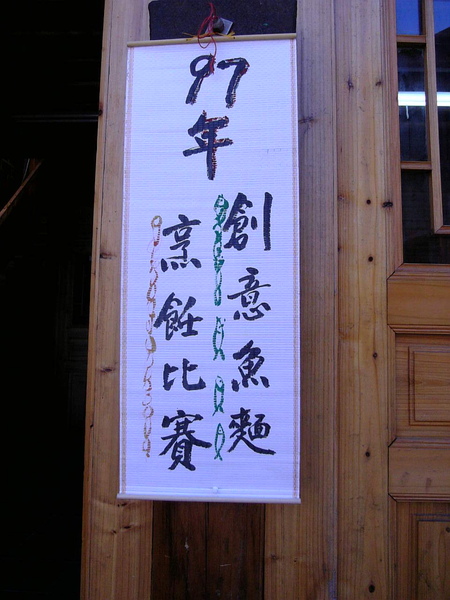 97年
創意魚麵
烹飪比賽